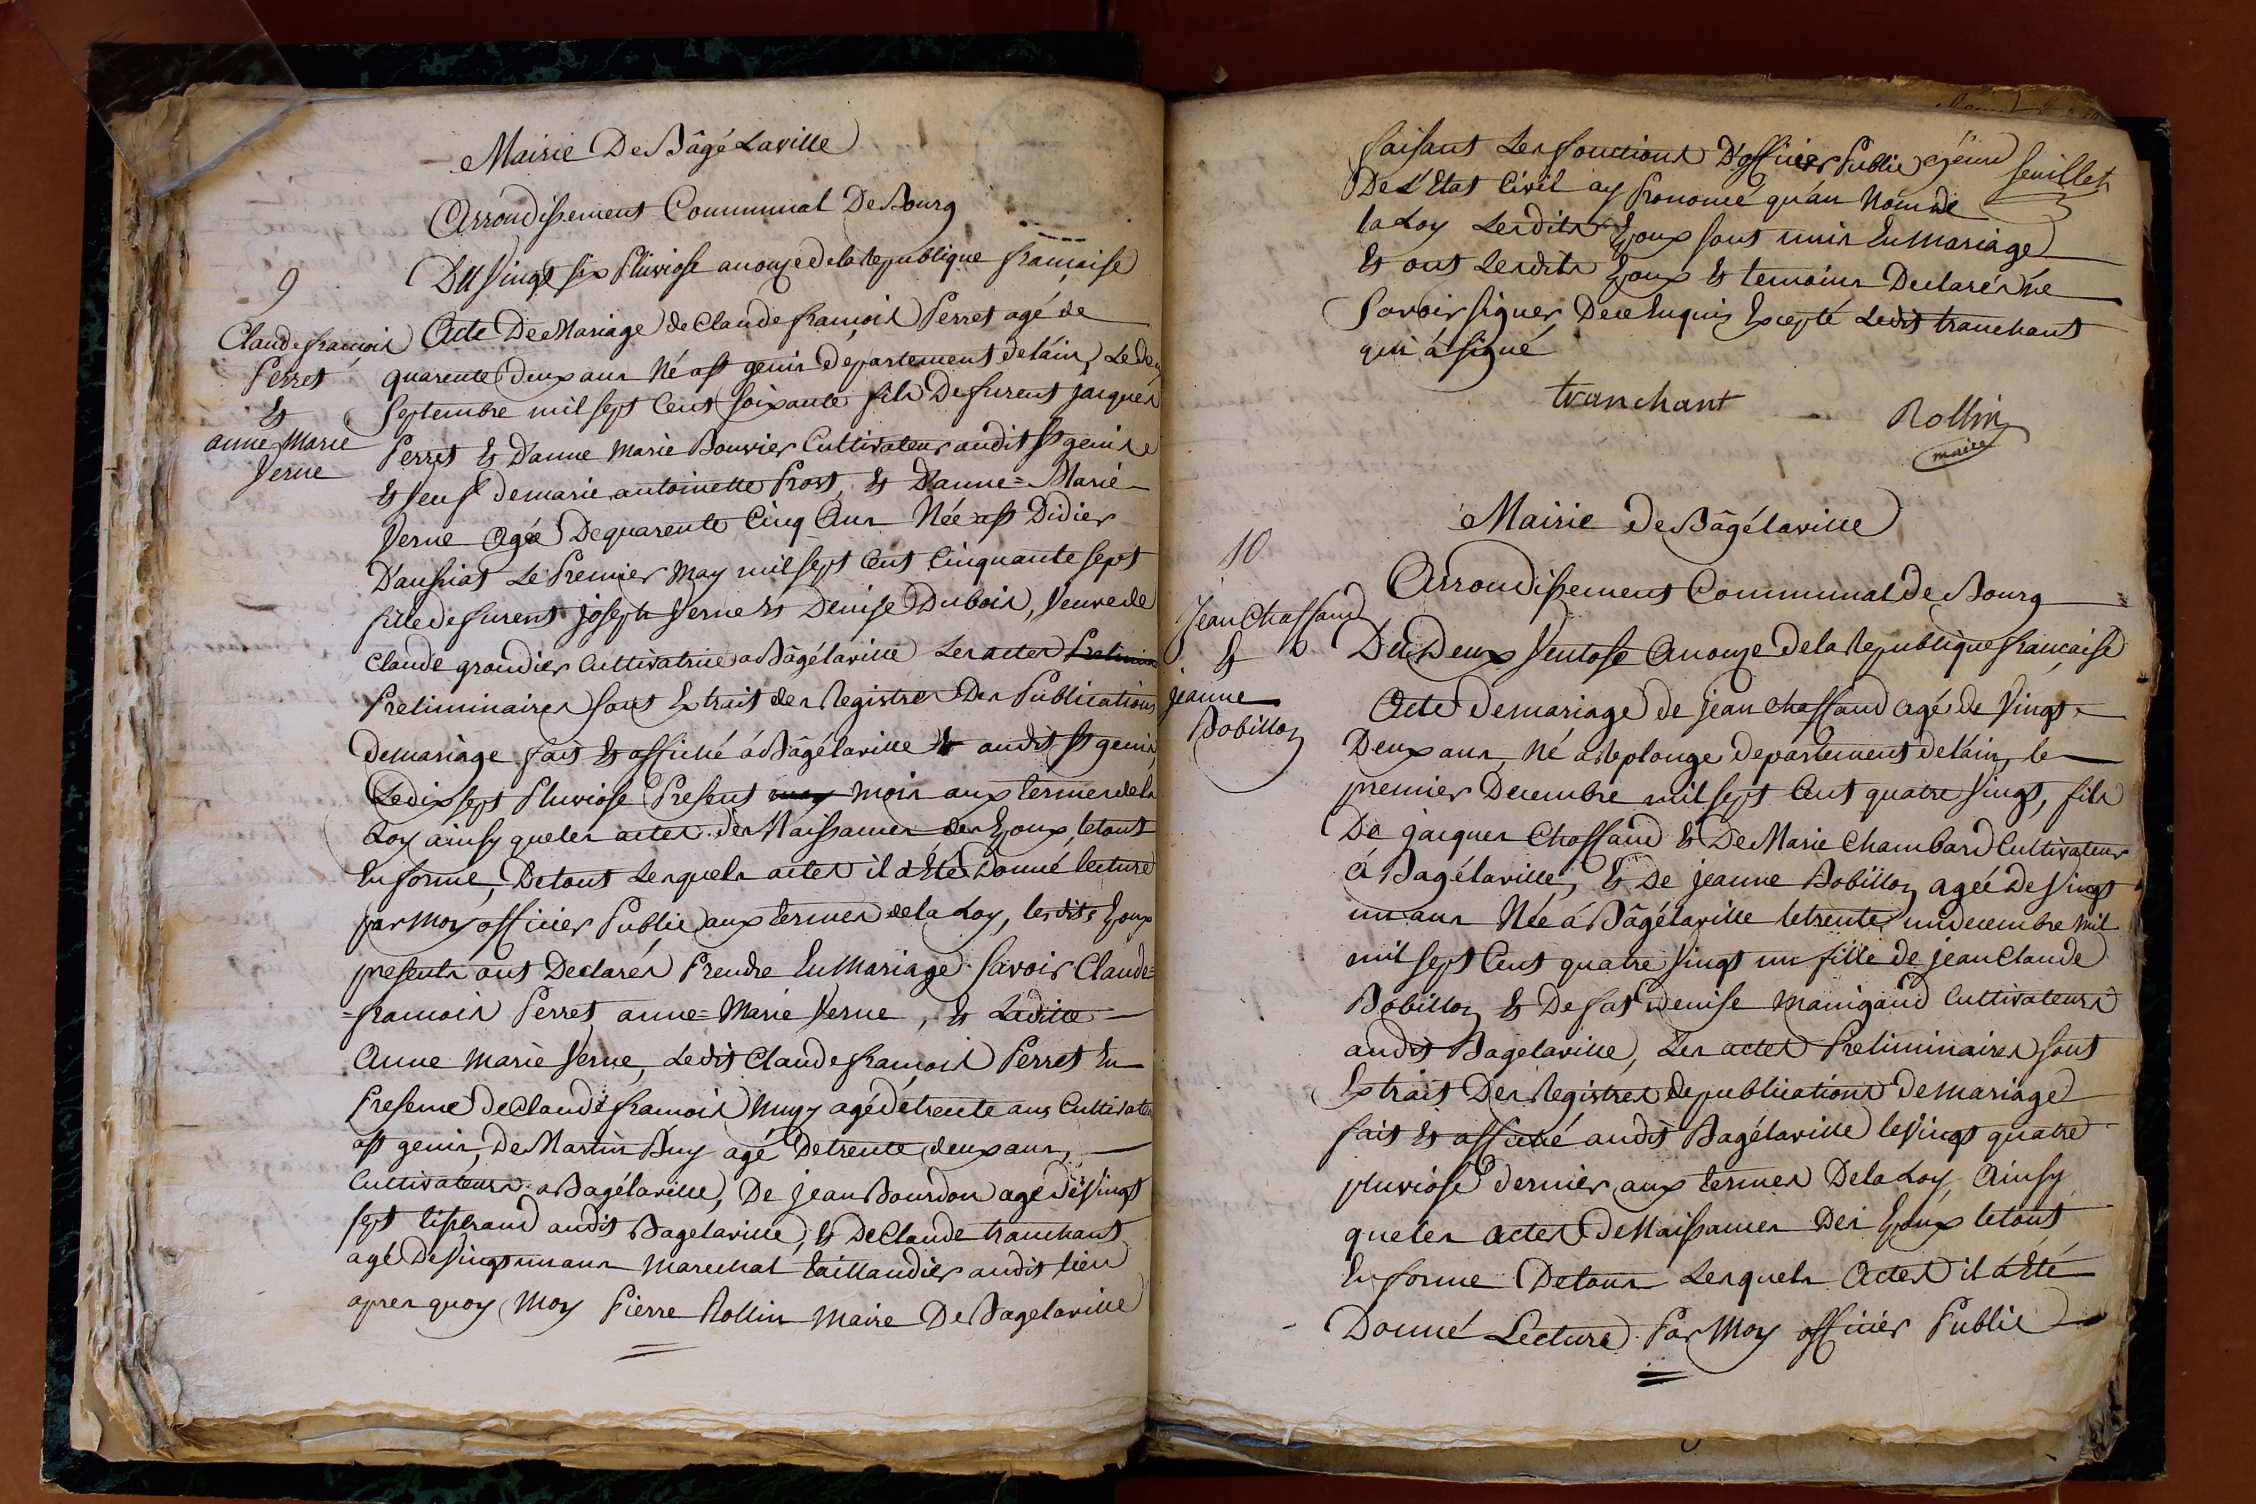 Mairie De Bâgé Laville
Arrondissement Communal De Bourg
Du Vingt six Pluviose an onze de la Republique française
9
Claude françois
Perret
Et
anne Marie
Verne
Acte De Mariage de Claude françois Perret agé de
quarente deux ans Né a st genis departement de láin, Le deux
Septembre mil sept Cent soixante fils Defunts jacques
Perret Et D'anne Marie Bouvier Cultivateur audit st genis
Et veuf de marie antoinette Prost, Et D'anne=Marie
Verne Agée De quarente Cinq Ans Née a st Didier
D'aussiat Le Premier May mil sept Cent Cinquante sept
fille defunts joseph Verne Et Denise Dubois, veuve de
Claude grandier Cultivatrice a Bâgélaville Les actes Prelimin
Preliminaires sont Extrait des Registres Des Publications
de mariage fait Et affiché á Bâgélaville Et audit st genis,
Le dix sept Pluviose Present may mois aux termes de la
Loy ainsy que les actes des Naissances des Epoux, le tout
En forme, De tout Lesquels actes il á Eté Donné lecture
par Moy officier Public aux termes de la Loy, lesdits Epoux
presents ont Declarés Prendre En Mariage Savoir Claude=
=françois Perret, anne=Marie Verne, Et Ladite
Anne Marie Verne, Ledit Claude françois Perret En
Presence De Claude françois agé de trente ans Cultivateur
a st genis, De Martin Buy agé De trente deux ans,
Cultivateurs a Bagélaville, De Jean Bourdon agé de Vingt
sept tisserand audit Bagelaville, Et De Claude tranchant
agé De Vingt un ans Marechal taillandier audit lieu
apres quoy Moy Pierre Rollin Maire De Bagelaville
faisant Les fonctions D'officier Public
feuillet
De L'Etat Civil ay Prononcé qu'au Nom de
la Loy Lesdits Epoux sont unis En Mariage
Et ont Lesdits Epoux Et temoins Declarés Ne
Savoir signer De ce Enquis Excepté Ledit tranchant
qui á signé
tranchant
Rollin
maire
Mairie de Bâgélaville
Arrondissement Communal de Bourg
10
Jean Chaffaud
Et
jeanne
Bobillon
Du Deux Ventose An onze de la Republique francaise
Acte de mariage de jean chaffaud agé de Vingt
Deux ans, Né a Replonge departement de láin, le
premier Decembre mil sept Cent quatre Vingt, fils
De jacques Chaffaud Et De Marie Chambard Cultivateur
á Bagélaville, Et De jeanne Bobillon agée De Vingt
un ans Née á Bâgélaville le trente un decembre mil
mil sept Cent quatre Vingt un fille de jean Claude
Bobillon Et De fat Denise Manigand Cultivateurs
audit Bagelaville, Les actes Preliminaires sont
Extrait Des Registres de publications de mariage
fait Et affiché audit Bagélaville le Vingt quatre
pluviose dernier aux termes De la Loy, Ainsy
que les Actes de Naissances Des Epoux le tout
En forme De tous Lesquels Actes il á Eté
Donné Lecture Par Moy officier Public